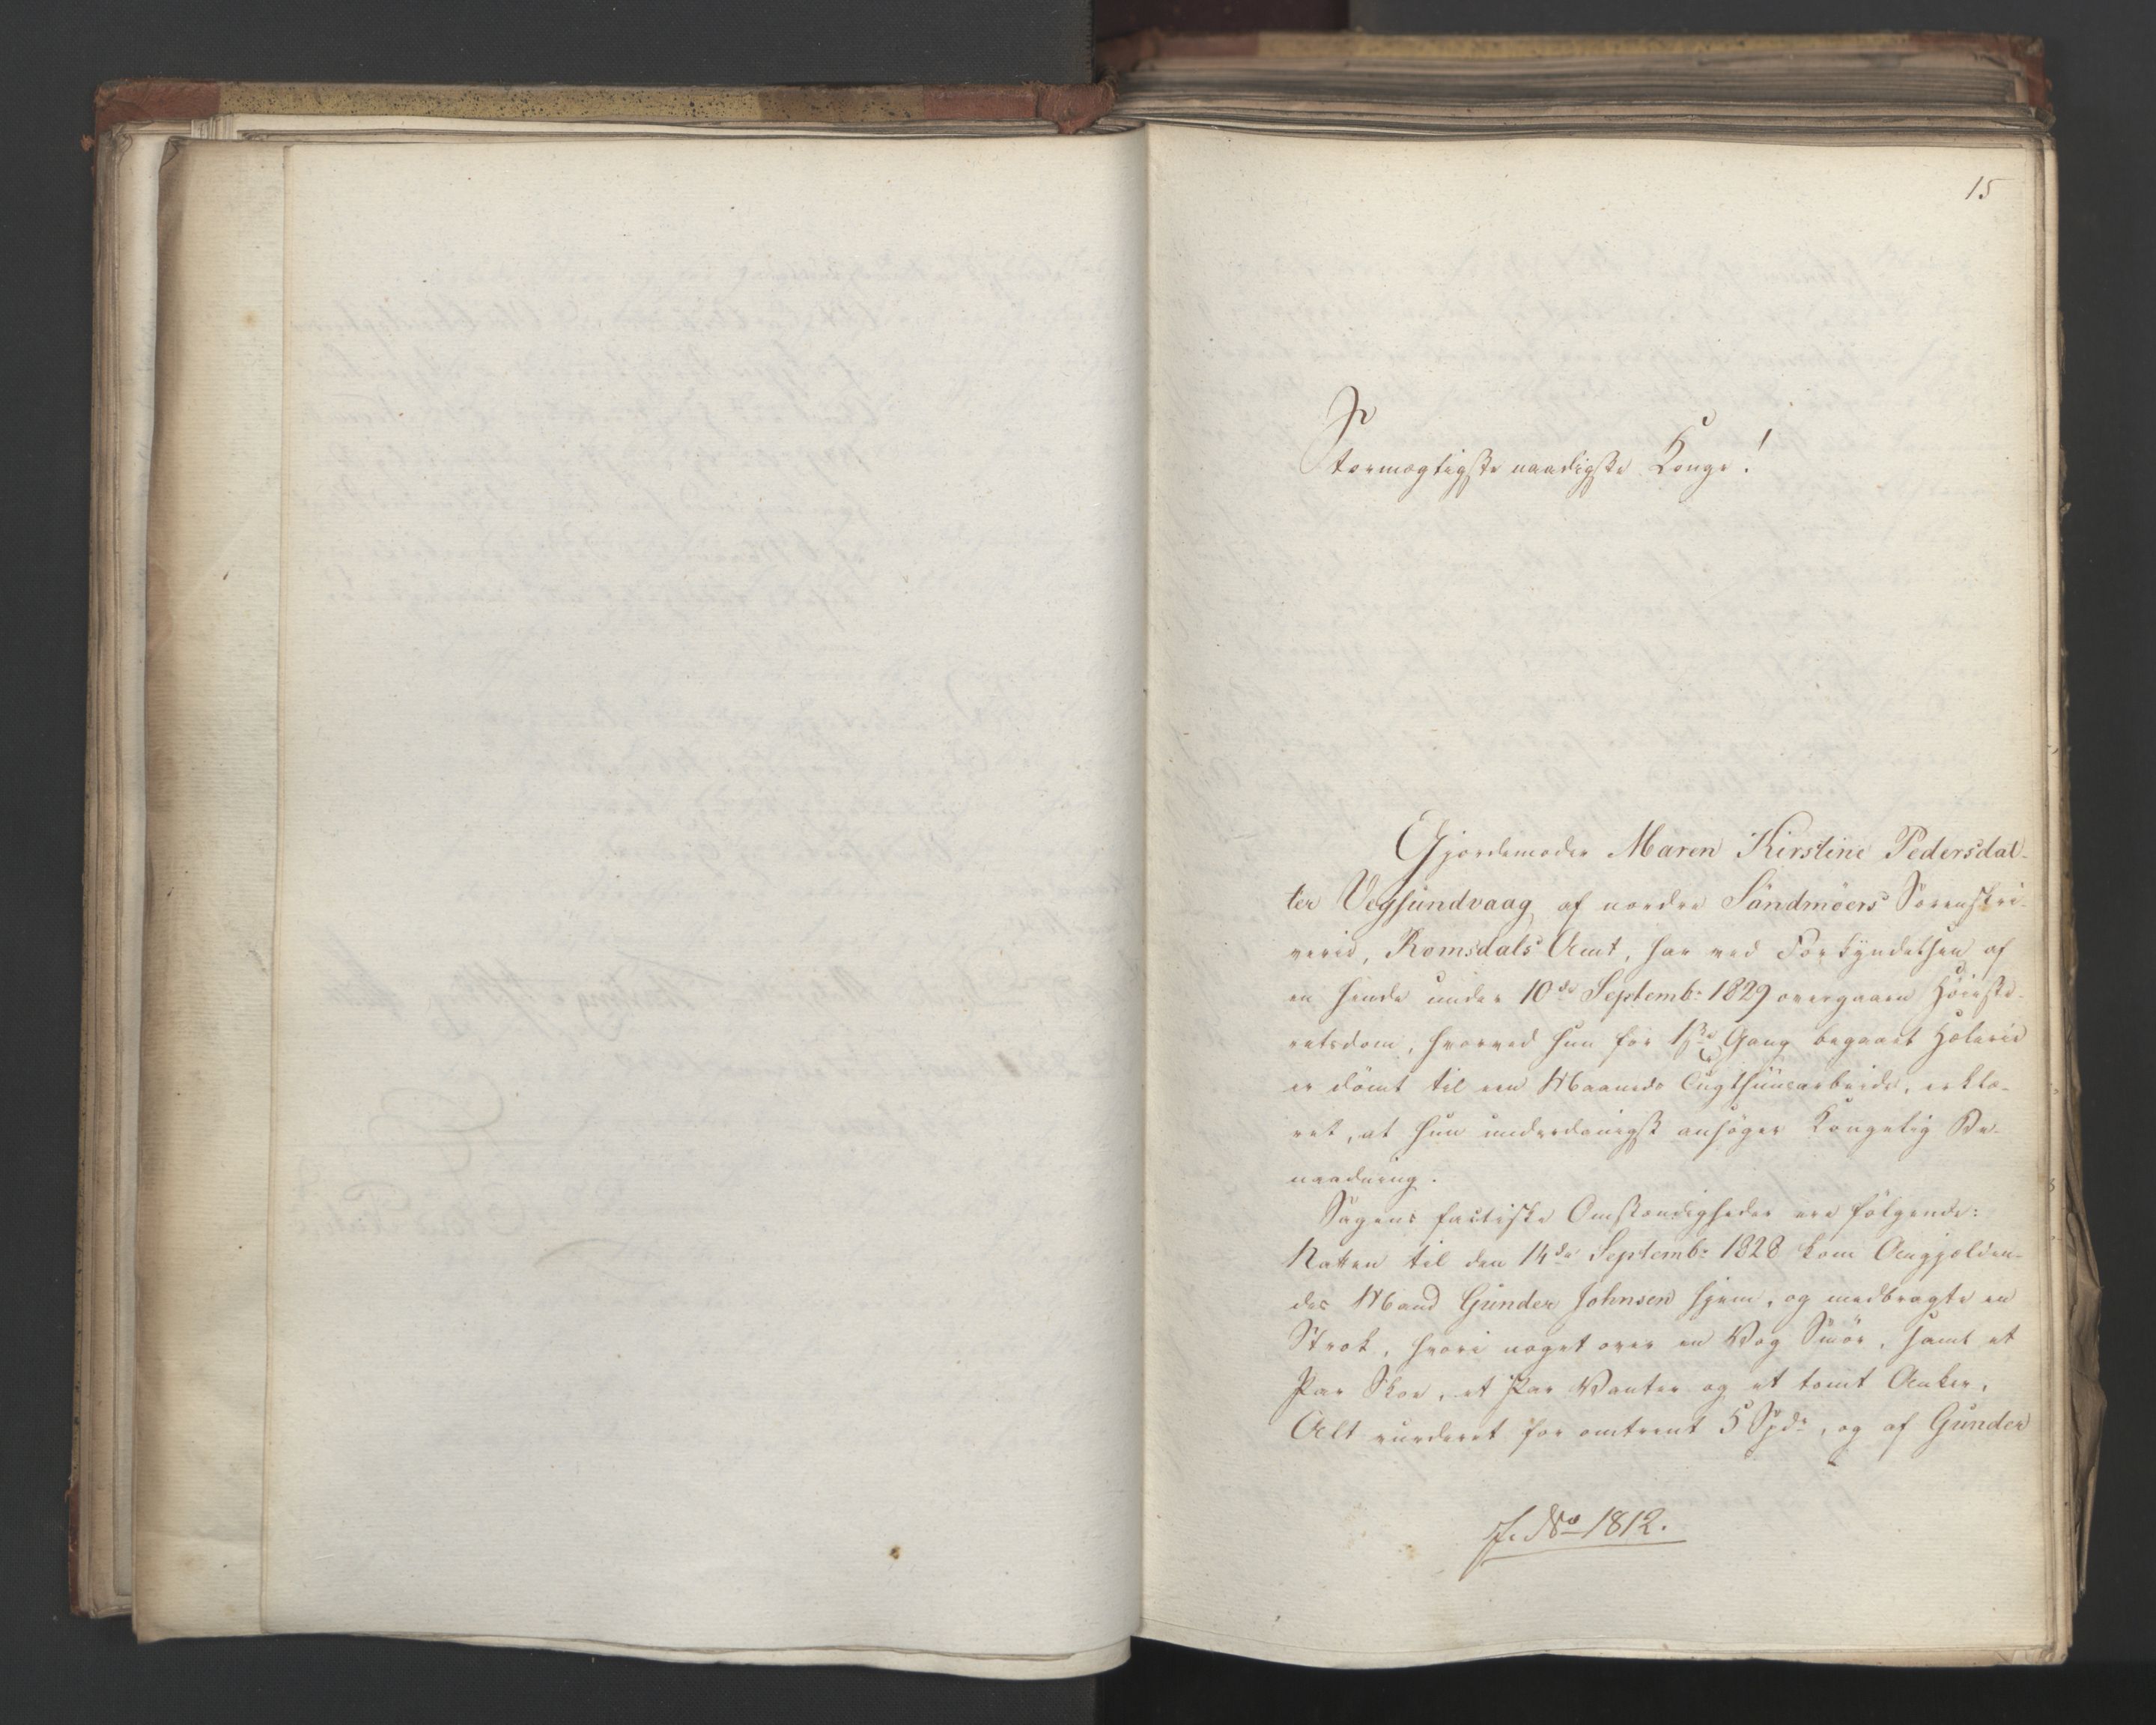 15
Stormægtigste naadigste Konge!
Gjordemoder Maren Kirstine Pedersdat-
ter Vegsundvaag af nordre Söndmöers Sorenskri-
verie, Romsdals Amt, har ved Forkyndelsen af
en hende under 10de Septembr 1829 overgaaen Höieste-
retsdom, hvorved hun for 1ste Gang begaaet Hæleri
er dömt til een Maaneds Tugthuusarbeide, erklæ-
ret, at hun underdanigst ansöger Kongelig Be-
naadning.
Sagens factiske Omstændigheder ere fölgende:
Natten til den 14de Septembr 1828 kom Angjælden-
des Mand Gunder Johnsen hjem, og medbragte en
Strok, hvori noget over en Vog Smör, samt et
Par Skoe, et Par Vanter og et tomt Anker,
Alt vurderet for omtrent 5 Spdr, og af Gunder
J. No 1812.